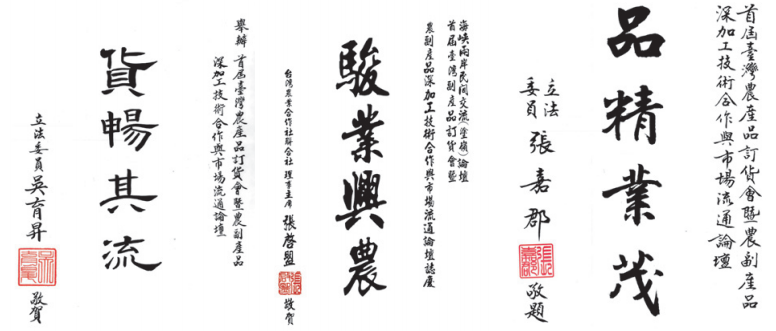 首屆臺灣農産品訂貨會暨農副産品
深加工技術合作與市場流通論壇
品精業茂
立法委員 張嘉郡 敬題
海峽兩岸民間交流(塗嶺)論壇
首届臺灣副産品訂貨會暨
農副産品深加工技術合作與市場流通論壇誌慶
駿業興農
台灣農業合作社聯合社 理事主席 張啓盟 敬賀
舉辦 首屆臺灣農産品訂貨會暨農副産品
深加工技術合作與市場流通論壇
貨暢其流
立法委員 吳育昇 敬賀